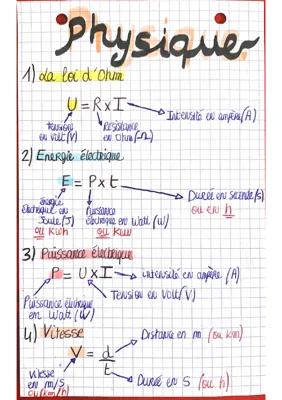 Physique
1) La loi d'Ohm
U = R x I
Intensité en ampère (A)
tension en volt (V)
Résistance en Ohm (Ω)
2) Energie électrique
E = P x t
Durée en seconde (s)
ou en h
énergie électrique en Joule (J)
ou Kwh
Puissance électrique en Watt (W)
ou Kw
3) Puissance électrique
P = U x I
intensité en ampère (A)
Tension en Volt (V)
Puissance électrique
en Watt (W)
4) Vitesse
Distance en m (ou km)
V = d
t
Durée en s (ou h)
vitesse
en m/s
(ou km/h)